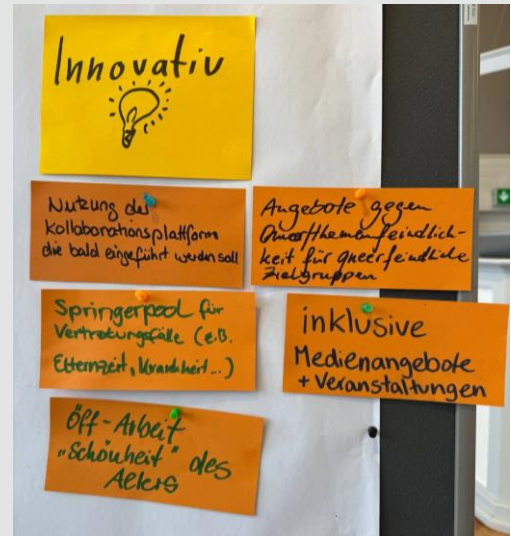 Innovativ
Nutzung der
Kollaborationsplattform
die bald eingeführt werden soll
Angebote gegen
Queerthemenfeindlich-
keit für queerfeindliche
Zielgruppen
Springerpool für
Vertretungsfälle (z.B.
Elternzeit, Krankheit...)
inklusive
Medienangebote
+ Veranstaltungen
Öff-Arbeit
"Schönheit" des
Alters